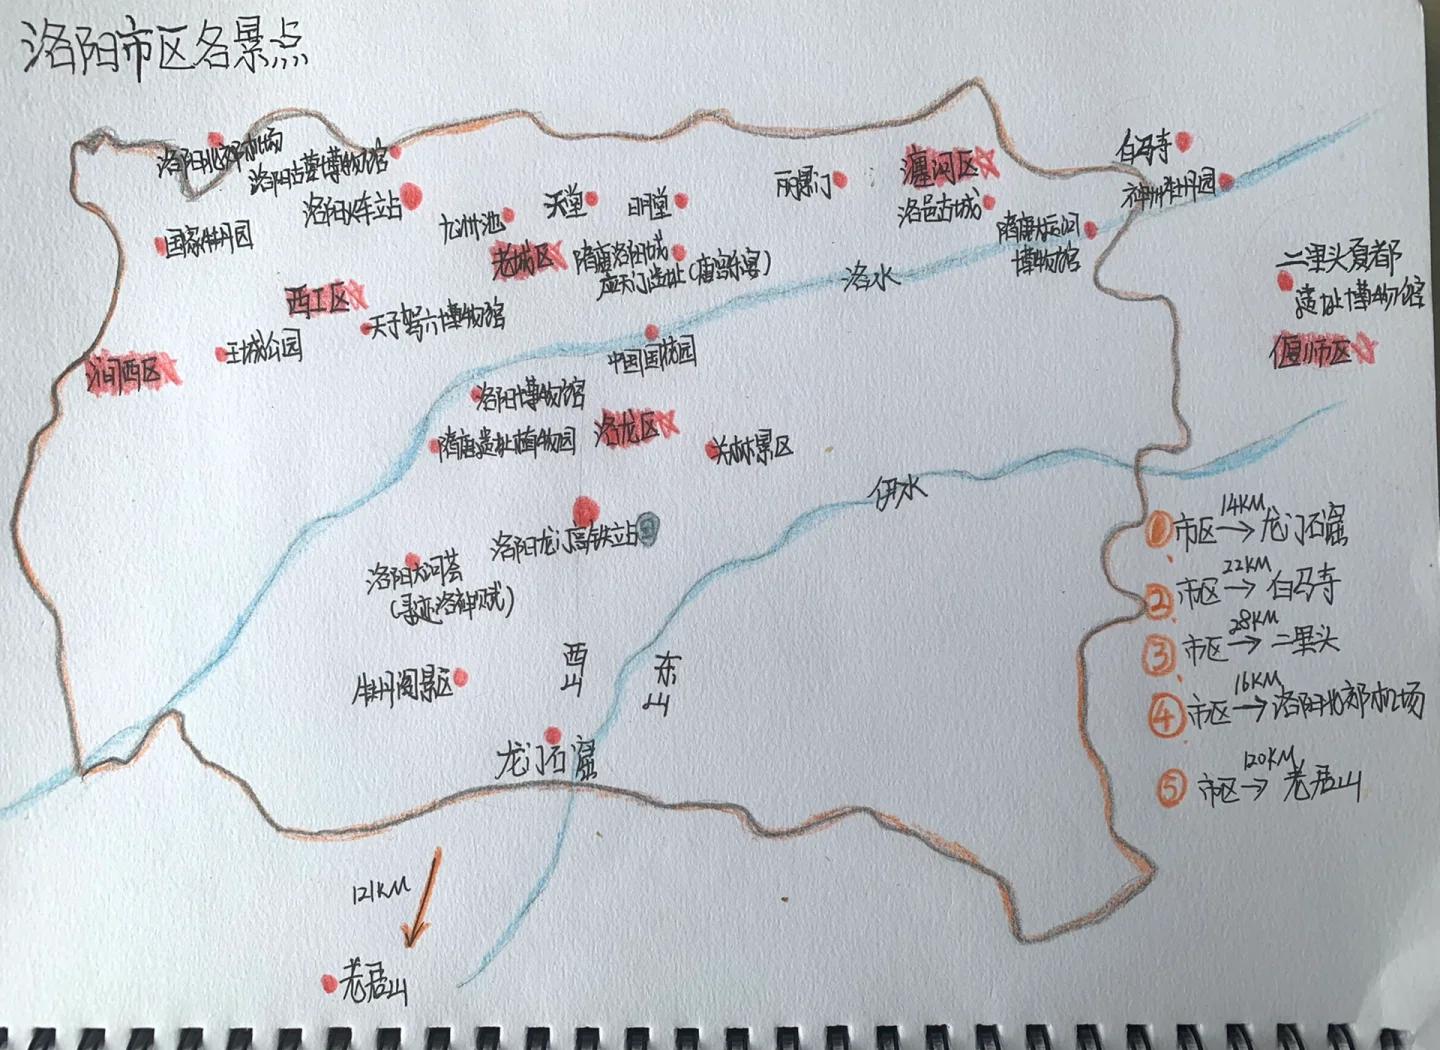 洛阳市区各景点
洛阳北郊机场
洛阳古墓博物馆
洛阳火车站
国家牡丹园
九洲池
天堂
明堂
丽景门
瀍河区
洛邑古城
白马寺
神州牡丹园
隋唐大运河
博物馆
老城区
隋唐洛阳城
应天门遗址(唐宫乐宴)
洛水
二里头夏都
遗址博物馆
偃师市区
西工区
天子驾六博物馆
王城公园
涧西区
中国国防园
洛阳博物馆
隋唐遗址植物园
洛龙区
关林景区
伊水
洛阳龙门高铁站
洛阳大河荟
(寻迹洛神赋)
牡丹阁景区
西
山
东
山
龙门石窟
121KM
老君山
① 市区 14KM→ 龙门石窟
② 市区 22KM→ 白马寺
③ 市区 28KM→ 二里头
④ 市区 16KM→ 洛阳北郊机场
⑤ 市区 120KM→ 老君山